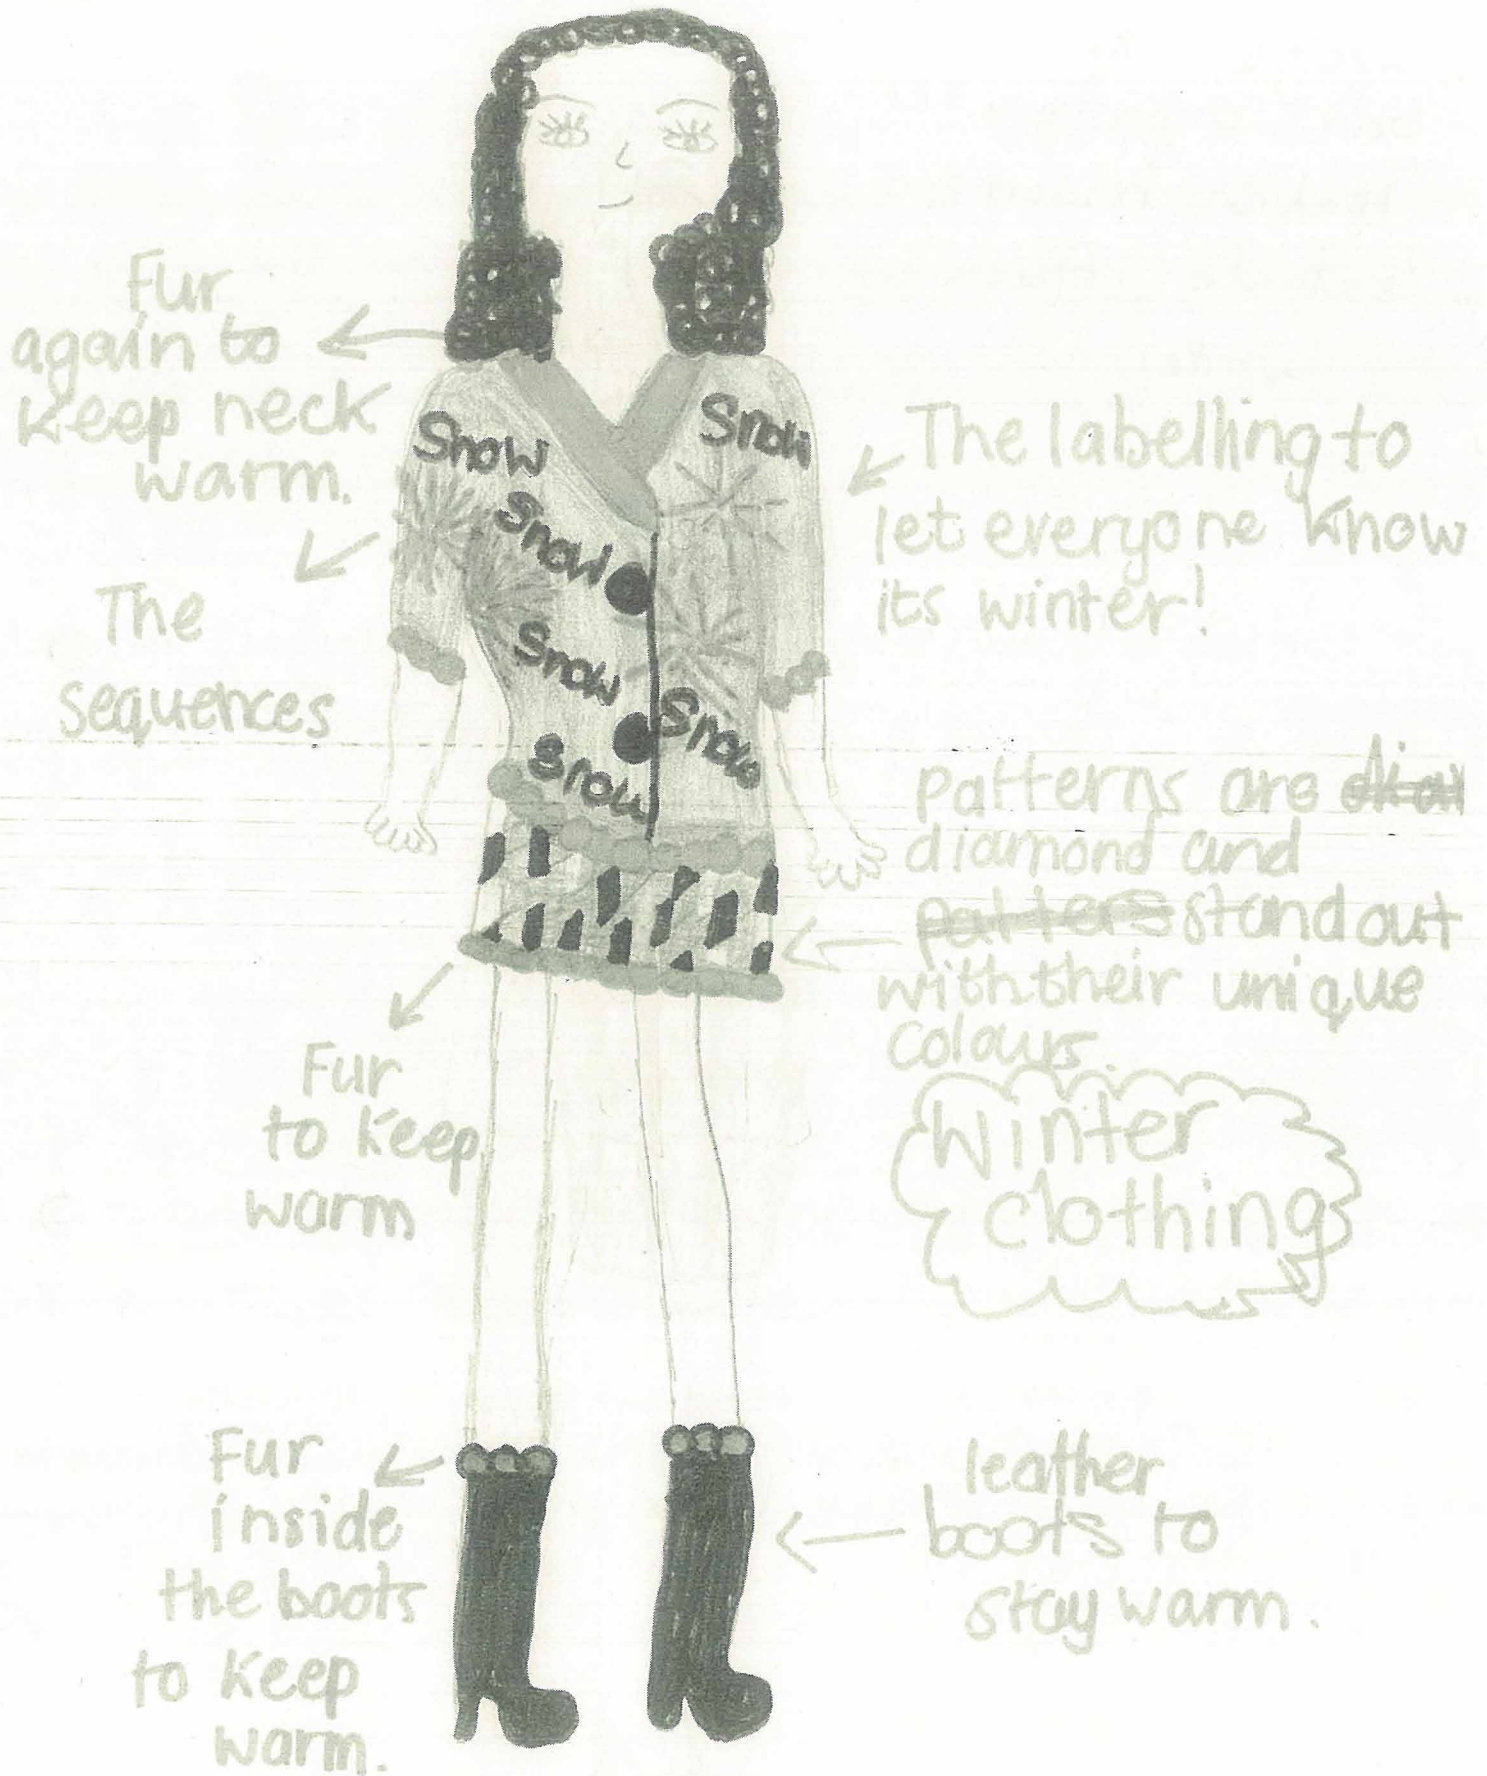 Fur
again to
keep neck
warm.
The
sequences
Snow
Snow
Snow
Snow
Snow
Snow
The labelling to
let everyone know
its winter!
patterns are
diamond and
patters stand out
with their unique
colours.
Fur
to keep
warm
Winter
clothing
Fur
inside
the boots
to keep
warm.
leather
boots to
stay warm.